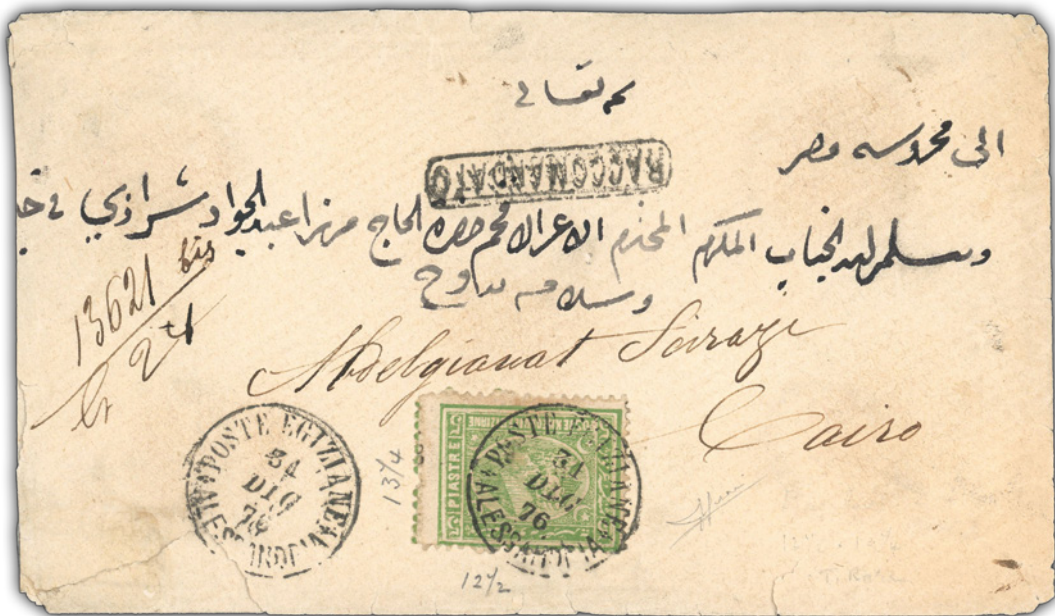 الى محروسه مصر
RACCOMANDATO
ويسلم ليد الجناب المكرم المحترم الاعز الافخم حضرة الحاج ميرزا عبد الجواد شيرازي في
13621 bis
24
Abdelgiauat Scirazi
Cairo
POSTE EGIZIANE
31
DIC
76
ALESSANDRIA
POSTE EGIZIANE
31
DIC
76
ALESSANDRIA
PIASTRE
13¼
12½